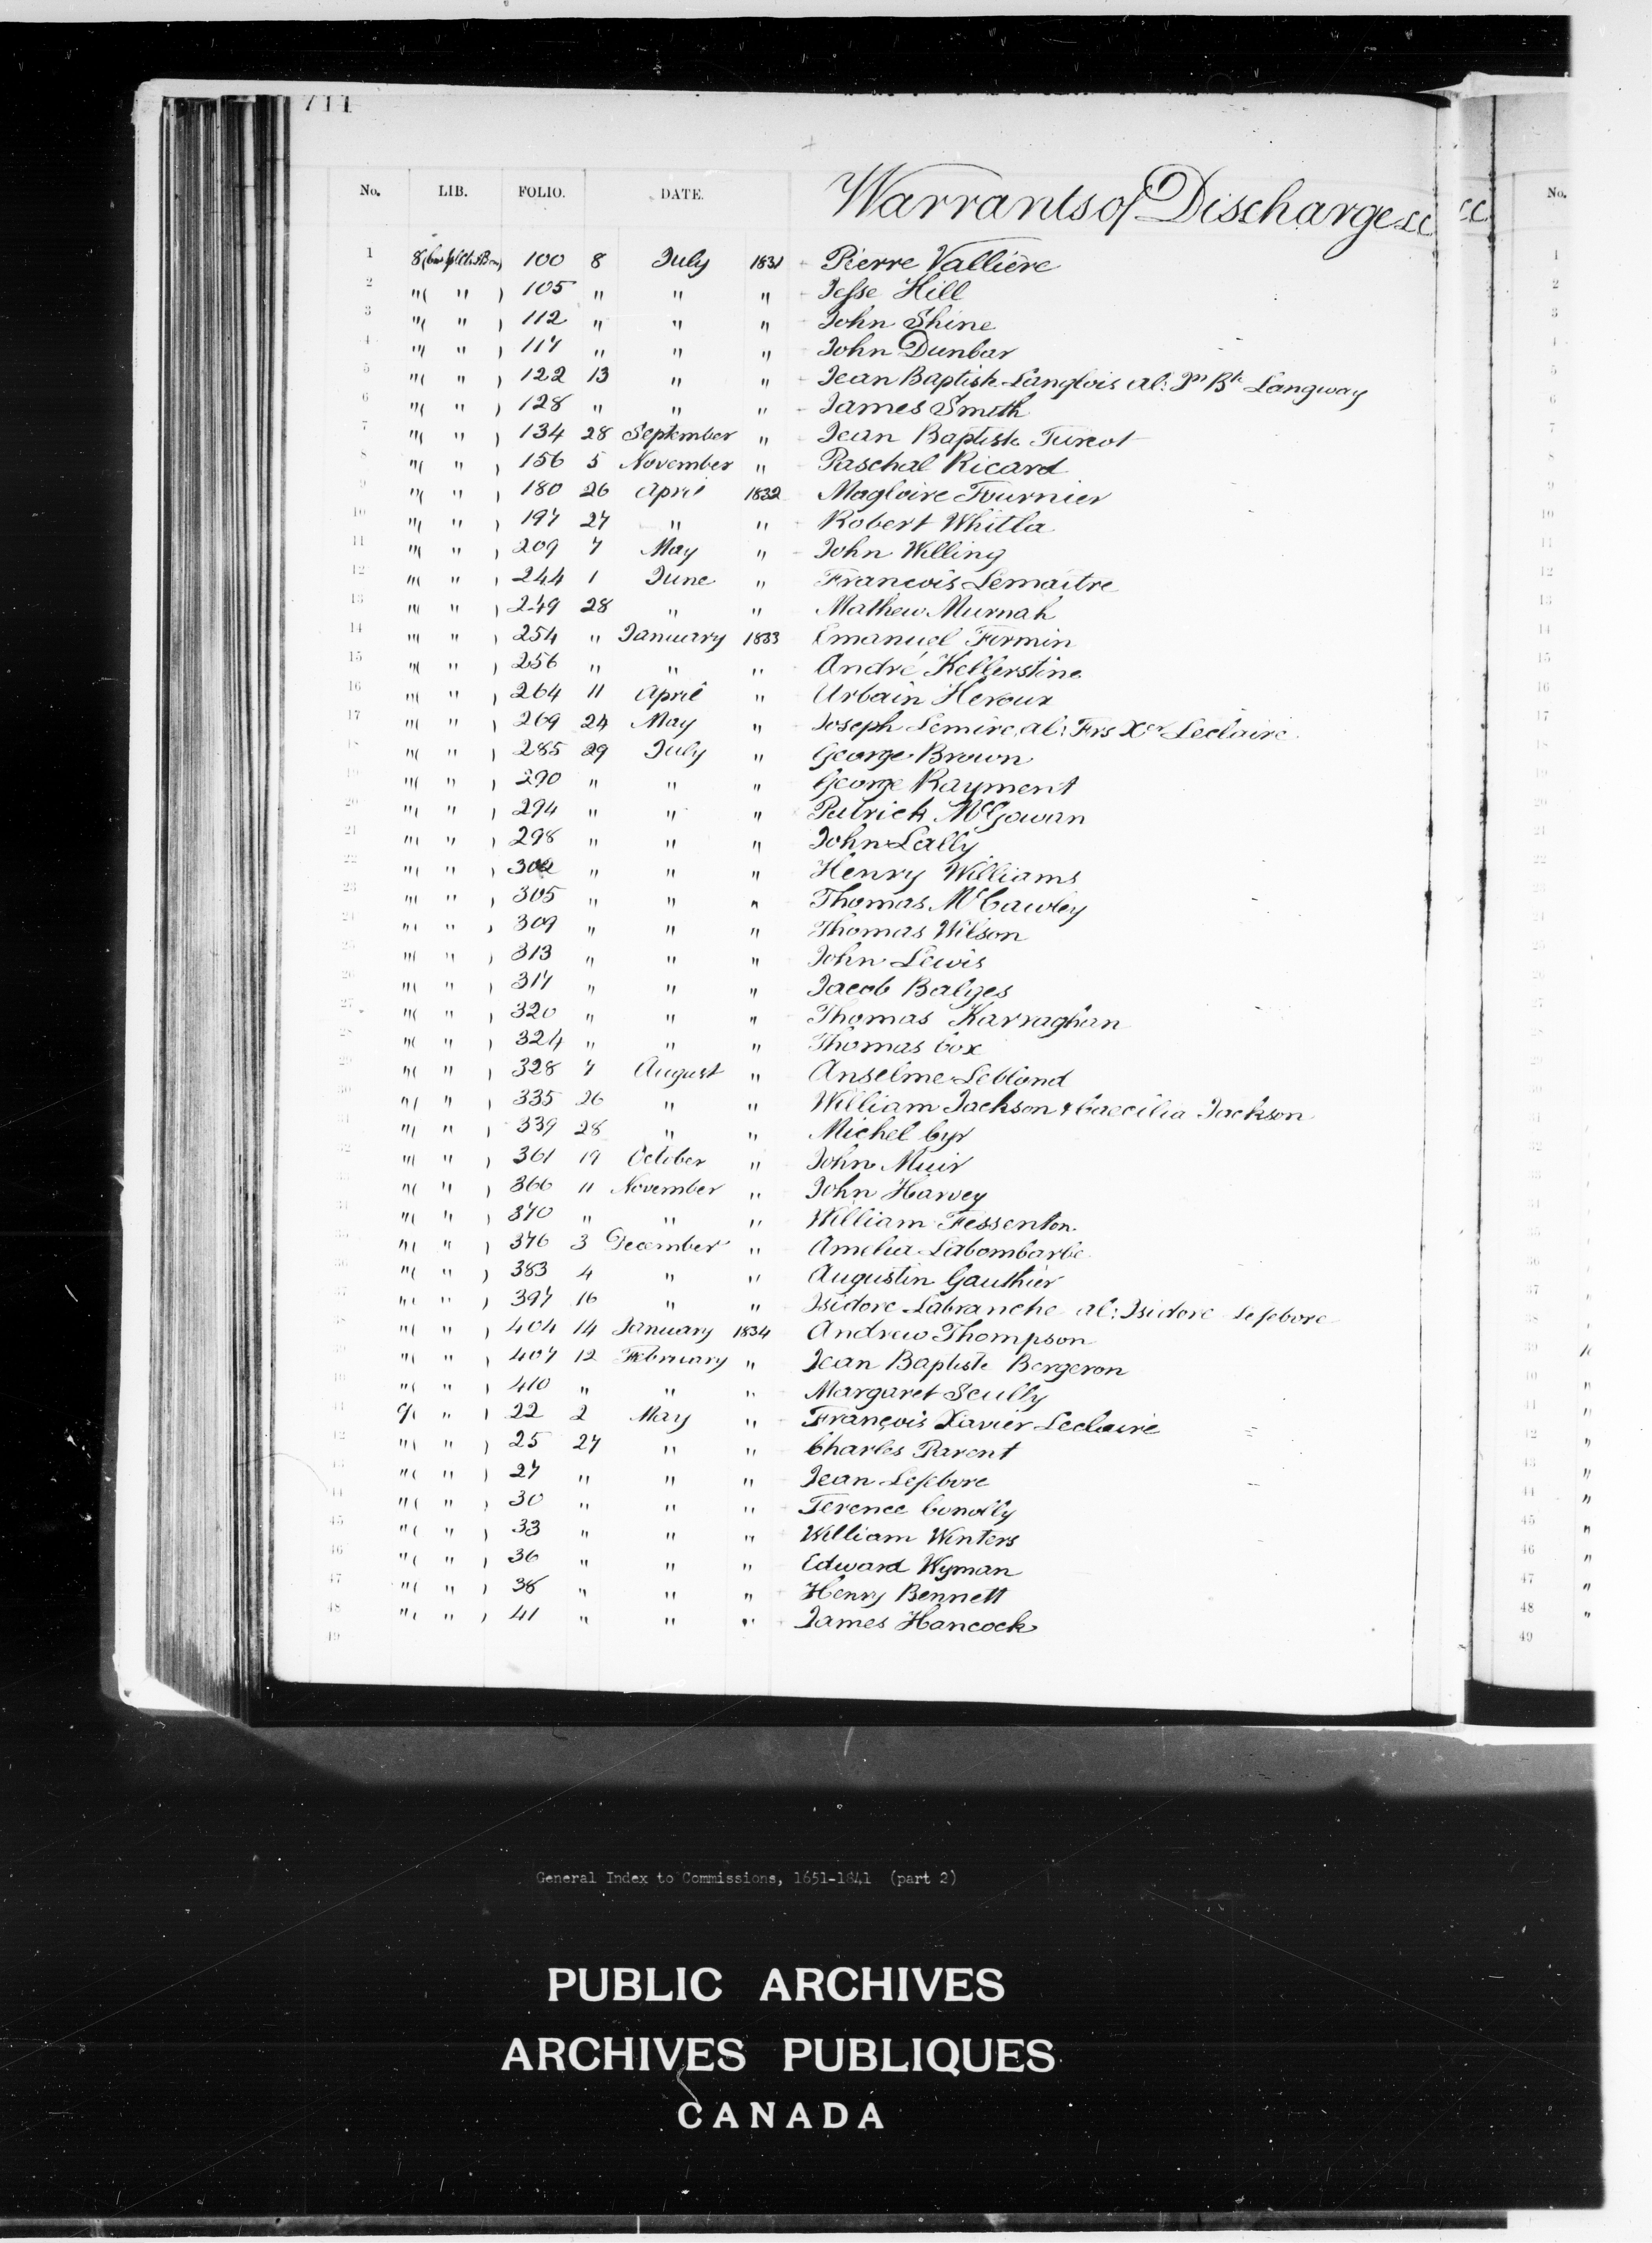 711
No. LIB. FOLIO. DATE. Warrants of Discharge &c
1 8 100 8 July 1831 Pierre Vallière
2 "( " ) 105 " " " Jesse Hill
3 "( " ) 112 " " " John Shine
4 "( " ) 117 " " " John Dunbar
5 "( " ) 122 13 " " Jean Baptiste Langlois al: Jn Bte Langway
6 "( " ) 128 " " " James Smith
7 "( " ) 134 28 September " Jean Baptiste Turcot
8 "( " ) 156 5 November " Paschal Ricard
9 "( " ) 180 26 April 1832 Magloire Fournier
10 "( " ) 197 27 " " Robert Whitla
11 "( " ) 209 7 May " John Willing
12 "( " ) 244 1 June " Francois Lemaitre
13 "( " ) 249 28 " " Mathew Murnah
14 "( " ) 254 " January 1833 Emanuel Firmin
15 "( " ) 256 " " " André Kellerstine
16 "( " ) 264 11 April " Urbain Heroux
17 "( " ) 269 24 May " Joseph Lemire, al: Frs Xer Leclaire
18 "( " ) 285 29 July " George Brown
19 "( " ) 290 " " " George Rayment
20 "( " ) 294 " " " Patrick McGowan
21 "( " ) 298 " " " John Lally
22 "( " ) 302 " " " Henry Williams
23 "( " ) 305 " " " Thomas McCawley
24 "( " ) 309 " " " Thomas Wilson
25 "( " ) 313 " " " John Lewis
26 "( " ) 317 " " " Jacob Balges
27 "( " ) 320 " " " Thomas Karraghan
28 "( " ) 324 " " " Thomas Cox
29 "( " ) 328 7 August " Anselme Leblond
30 "( " ) 335 26 " " William Jackson & Caecilia Jackson
31 "( " ) 339 28 " " Michel Cyr
32 "( " ) 361 19 October " John Muir
33 "( " ) 366 11 November " John Harvey
34 "( " ) 370 " " " William Fessenton
35 "( " ) 376 3 December " Amelia Labombarbe
36 "( " ) 383 4 " " Augustin Gauthier
37 "( " ) 397 16 " " Isidore Labranche al: Isidore Lefebvre
38 "( " ) 404 14 January 1834 Andrew Thompson
39 "( " ) 407 12 February " Jean Baptiste Bergeron
40 "( " ) 410 " " " Margaret Scully
41 9( " ) 22 2 May " François Xavier Leclaire
42 "( " ) 25 27 " " Charles Parent
43 "( " ) 27 " " " Jean Lefebvre
44 "( " ) 30 " " " Terence Conolly
45 "( " ) 33 " " " William Winters
46 "( " ) 36 " " " Edward Wyman
47 "( " ) 38 " " " Henry Bennett
48 "( " ) 41 " " " James Hancock
49
General Index to Commissions, 1651-1841 (part 2)
PUBLIC ARCHIVES
ARCHIVES PUBLIQUES
CANADA